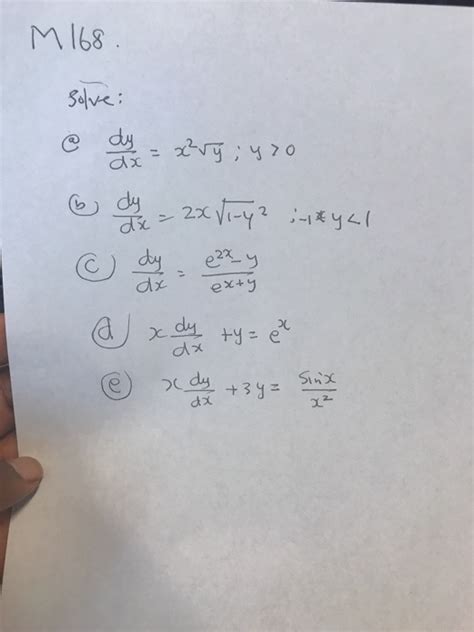 M168.
Solve:
(a) dy/dx = x²√y ; y > 0
(b) dy/dx = 2x√1-y² ; -1 < y < 1
(c) dy/dx = e^(2x-y)/e^(x+y)
(d) x dy/dx + y = e^x
(e) x dy/dx + 3y = sin x/x²